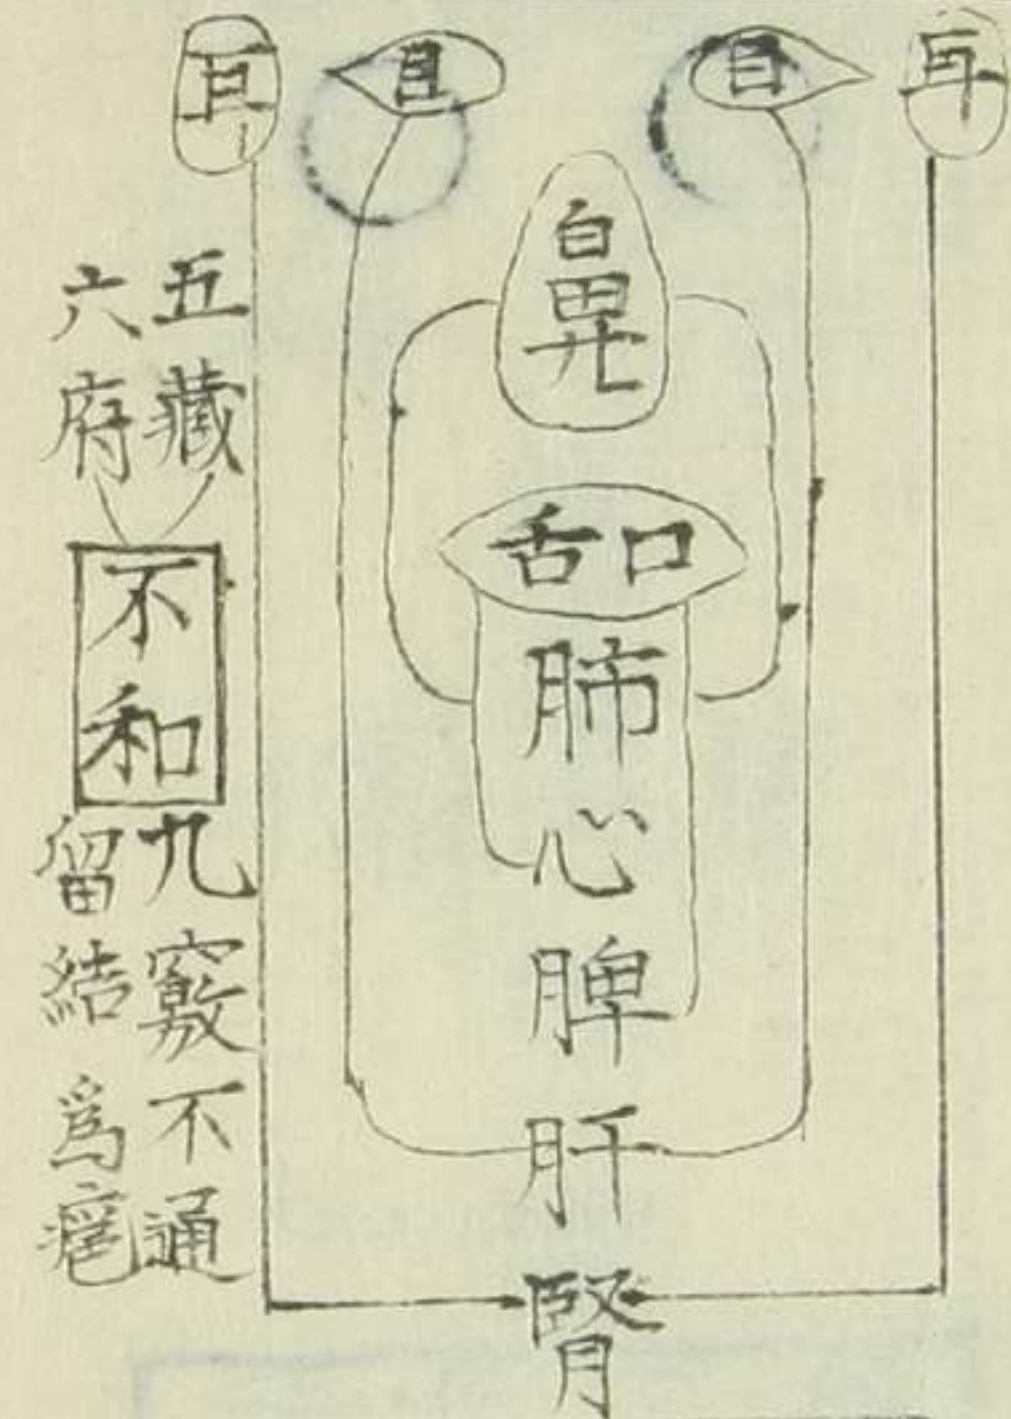 耳
目
目
耳
鼻
舌口
肺
心
脾
肝
腎
五藏
六府
不和
九竅不通
留結為癰